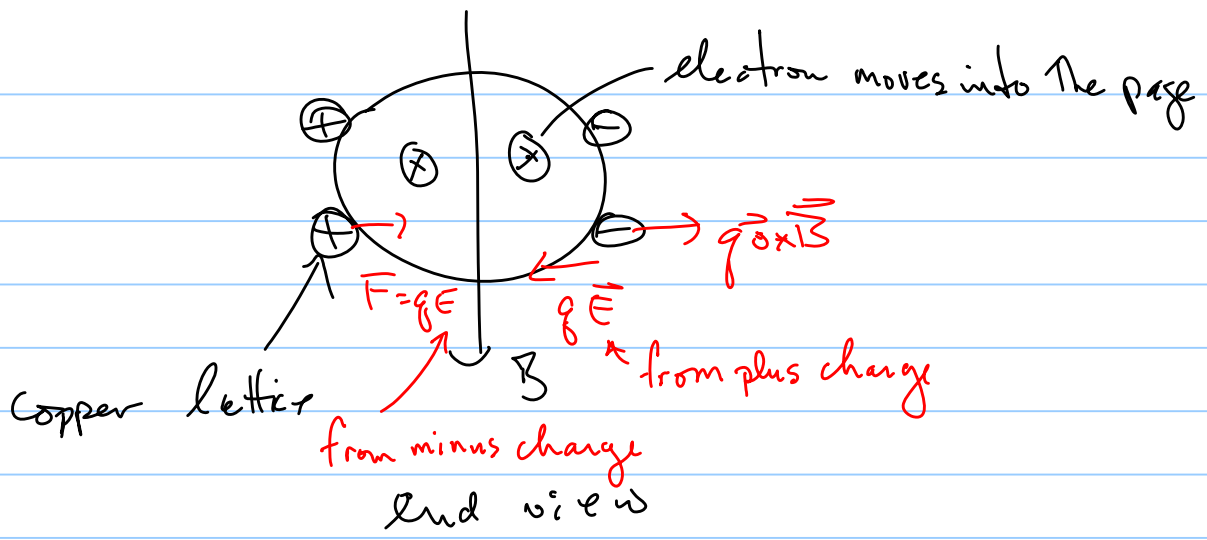 electron moves into the page
+ −
x x
+ − q v⃗ x B⃗
F⃗ = qE q E⃗
B from plus charge
copper lattice
from minus charge
end view